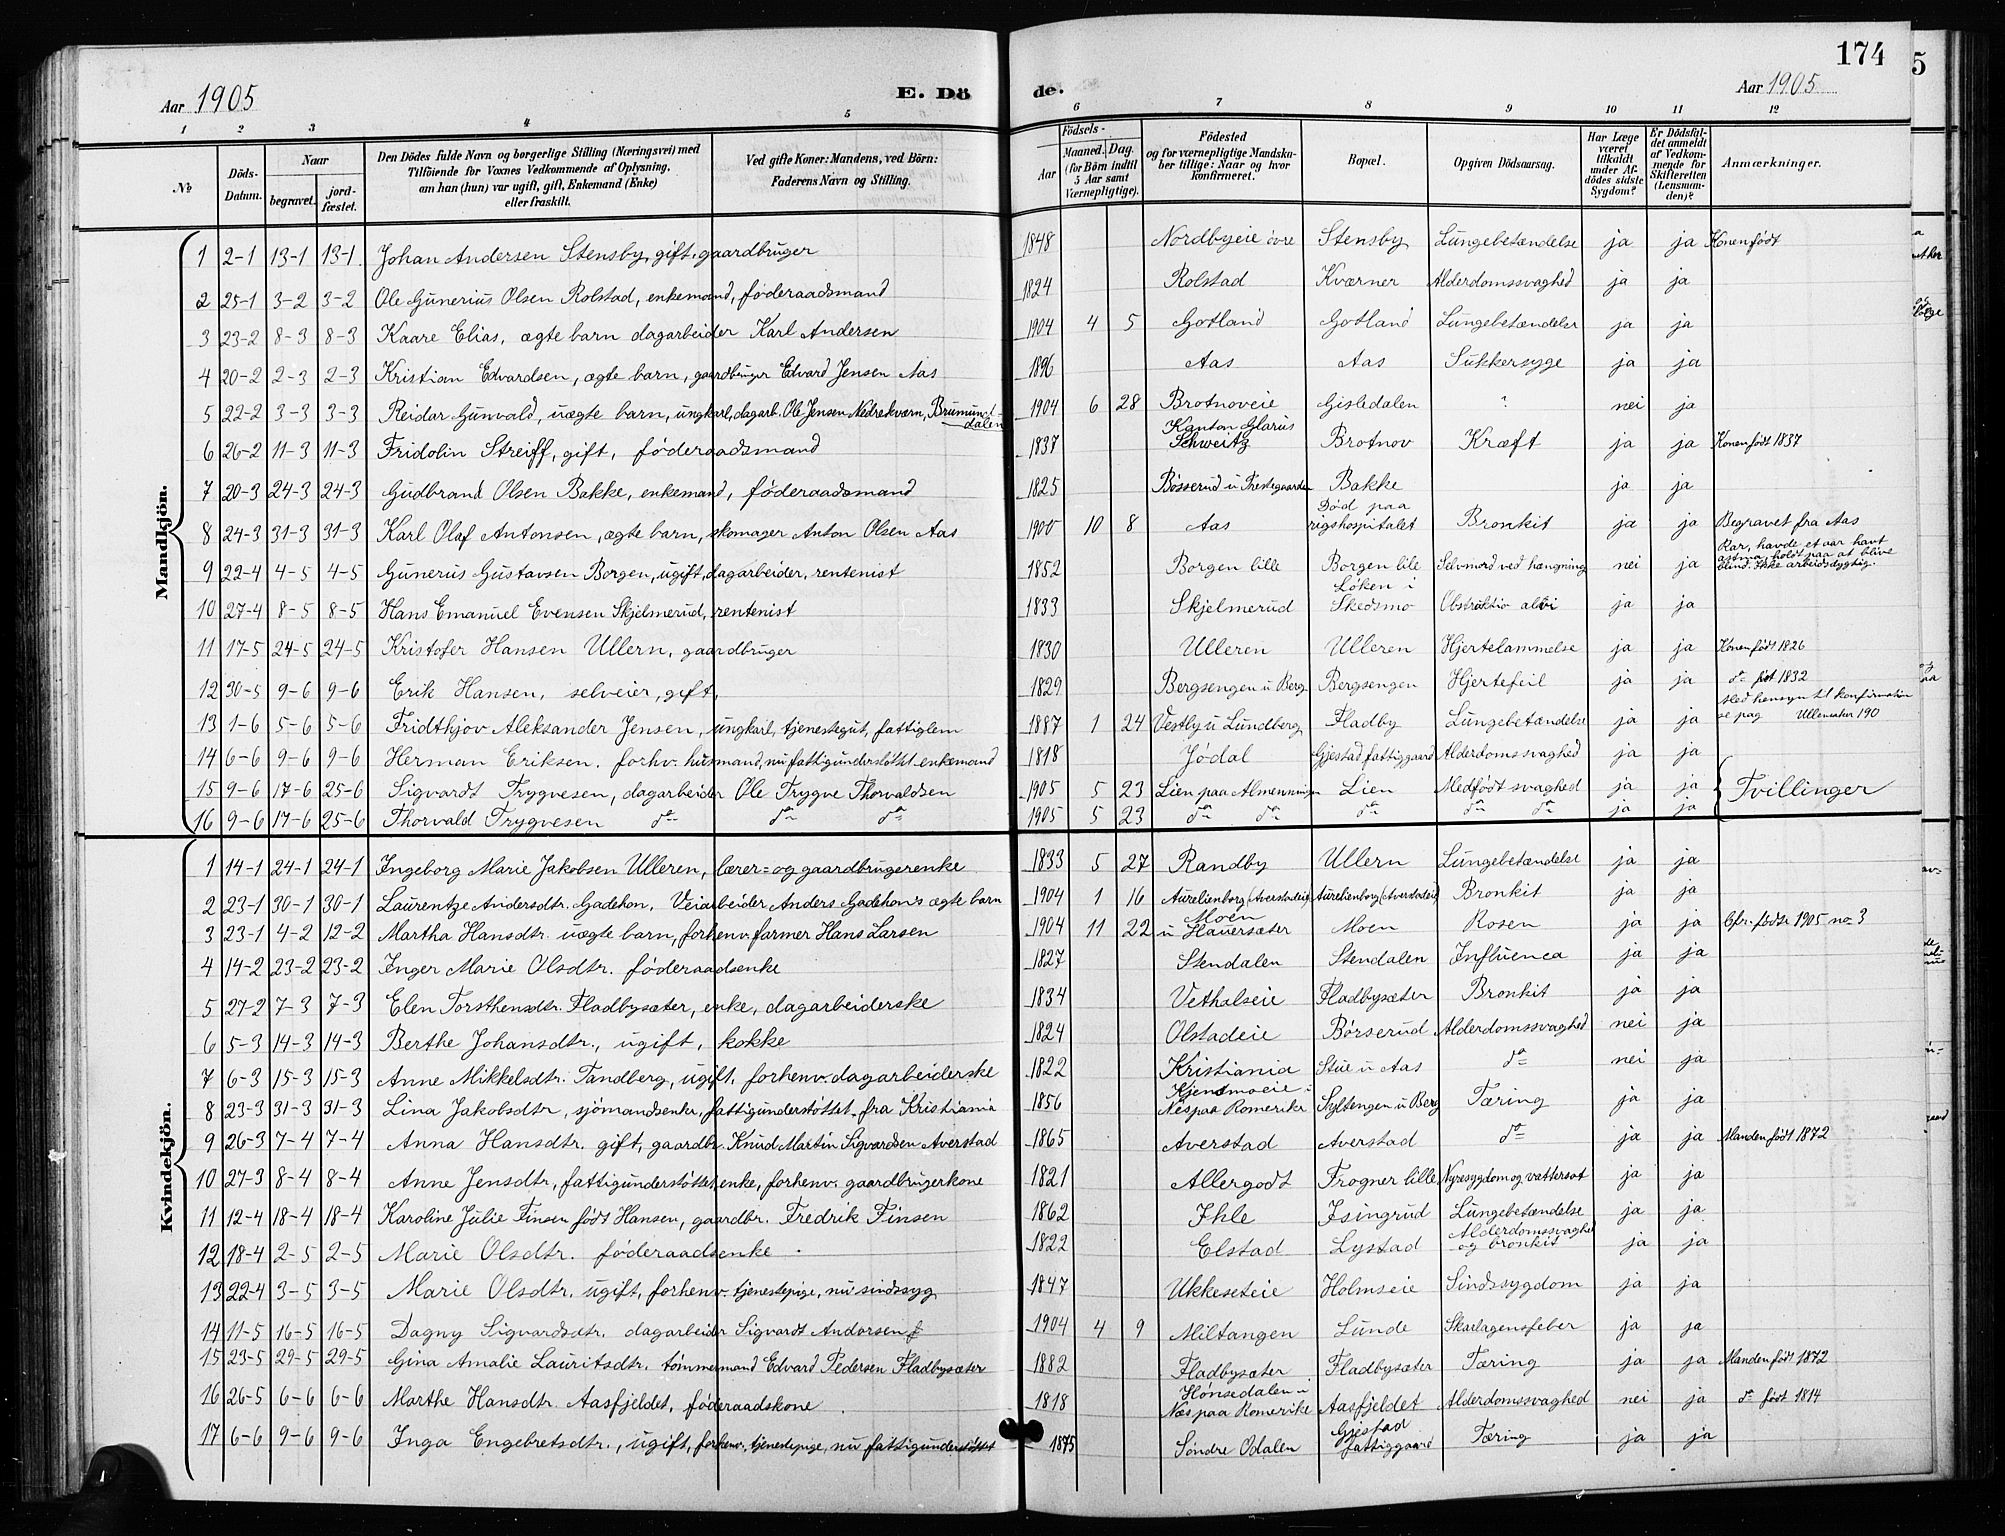 174
5
Aar 1905
E. Dö
de.
Aar 1905
1 2 3 4 5 6 7 8 9 10 11 12
№
Döds-Datum.
Naar
begravet.
jord-fæstet.
Den Dödes fulde Navn og borgerlige Stilling (Næringsvei) med
Tilföiende for Voxnes Vedkommende af Oplysning,
om han (hun) var ugift, gift, Enkemand (Enke)
eller fraskilt.
Ved gifte Koner: Mandens, ved Börn:
Faderens Navn og Stilling.
Födsels-
Aar
Maaned. Dag.
(for Börn indtil
5 Aar samt
Værnepligtige).
Födested
og for værnepligtige Mandska-
ber tillige: Naar og hvor
konfirmeret.
Bopæl.
Opgiven Dödsaarsag.
Har Læge
været
tilkaldt
under Af-
dödes sidste
Sygdom?
Er Dödsfal-
det anmeldt
af Vedkom-
mende for
Skifteretten
(Lensman-
den)?
Anmærkninger.
Mandkjön.
1 2-1 13-1 13-1 Johan Andersen Stensby, gift, gaardbruger 1848 Nordbyeie övre Stensby Lungebetændelse ja ja Konen født
2 25-1 3-2 3-2 Ole Gunerius Olsen Rolstad, enkemand, føderaadsmand 1824 Rolstad Kværner Alderdomssvaghed ja ja
3 23-2 8-3 8-3 Kaare Elias, ægte barn dagarbeider Karl Andersen 1904 4 5 Gotland Gotland Lungebetændelse ja ja
4 20-2 2-3 2-3 Kristian Edvardsen, ægte barn, gaardbruger Edvard Jensen Aas 1896 Aas Aas Sukkersyge ja ja
5 22-2 3-3 3-3 Reidar Gunvald, uægte barn, ungkarl, dagarb. Ole Jensen Nedrekværn, Brumunddalen 1904 6 28 Brotnoveie Gisledalen ? nei ja
6 26-2 11-3 11-3 Fridolin Streiff, gift, føderaadsmand 1837 Kanton Glarus Schweitz Brotnov Kræft ja ja Konen født 1837
7 20-3 24-3 24-3 Gudbrand Olsen Bakke, enkemand, føderaadsmand 1825 Bøsserud u Prestegaarden Bakke ja ja
8 24-3 31-3 31-3 Karl Olaf Antonsen, ægte barn, skomager Anton Olsen Aas 1900 10 8 Aas Død paa rigshospitalet Bronkit ja ja Begravet fra Aas
9 22-4 4-5 4-5 Gunerus Gustavsen Borgen, ugift, dagarbeider, rentenist 1852 Borgen lille Borgen lile Selvmord ved hængning nei ja Rar, havde et aar havt astma, holdt paa at blive blind. Ikke arbeidsdygtig.
10 27-4 8-5 8-5 Hans Emanuel Evensen Skjelmerud, rentenist 1833 Skjelmerud Löken i Skedsmo Obstruktio alvi ja ja
11 17-5 24-5 24-5 Kristofer Hansen Ullern, gaardbruger 1830 Ulleren Ulleren Hjertelammelse ja ja Konen født 1826
12 30-5 9-6 9-6 Erik Hansen, selveier, gift, 1829 Bergsengen u Berg Bergsengen Hjertefeil ja ja do født 1832
13 1-6 5-6 5-6 Fridthjov Aleksander Jensen, ungkarl, tjenestegut, fattiglem 1887 1 24 Vestby u Lundberg Fladby Lungebetændelse ja ja Med hensyn til konfirmation se pag 190
14 6-6 9-6 9-6 Herman Eriksen. forhv. husmand, nu fattigunderstøttet enkemand 1818 Jødal Gjestad fattiggaard Alderdomssvaghed ja ja
15 9-6 17-6 25-6 Sigvardt Trygvesen, dagarbeider Ole Trygve Thorvaldsen 1905 5 23 Lien paa Almenningen Lien Medfødt svaghed ja ja Tvillinger
16 9-6 17-6 25-6 Thorvald Trygvesen do do do 1905 5 23 do do do do do ja ja
Kvindekjön.
1 14-1 24-1 24-1 Ingeborg Marie Jakobsen Ulleren, lærer- og gaardbrugerenke 1833 5 27 Randby Ullern Lungebetændelse ja ja
2 23-1 30-1 30-1 Laurentze Andersdtr. Gadehon, Veiarbeider Anders Gadehon's ægte barn 1904 1 16 Aurelienborg (Averstadeie) Aurelienborg (Averstadeie) Bronkit ja ja
3 23-1 4-2 12-2 Martha Hansdtr. uægte barn, forhenv. farmer Hans Larsen 1904 11 22 Moen u Hauersæter Moen Rosen ja ja Cfr. fødte 1905 no 3
4 14-2 23-2 23-2 Inger Marie Olsdtr. føderaadsenke 1827 Stendalen Stendalen Influenca ja ja
5 27-2 7-3 7-3 Elen Torsthensdtr. Fladbysæter, enke, dagarbeiderske 1834 Vethalseie Fladbysæter Bronkit ja ja
6 5-3 14-3 14-3 Berthe Johansdtr., ugift, kokke 1824 Olstadeie Børserud Alderdomssvaghed nei ja
7 6-3 15-3 15-3 Anne Mikkelsdtr. Tandberg, ugift, forhenv. dagarbeiderske 1822 Kristiania Stue u Aas do nei ja
8 23-3 31-3 31-3 Lina Jakobsdtr, sjömandsenke, fattigunderstøttet fra Kristiania 1856 Kjendmoeie i Nes paa Romerike Syltengen u Berg Tæring ja ja
9 26-3 7-4 7-4 Anna Hansdtr. gift, gaardbr. Knud Martin Sigvardsen Averstad 1865 Averstad Averstad do ja ja Manden født 1872
10 27-3 8-4 8-4 Anne Jensdtr, fattigunderstøttet, enke, forhenv. gaardbrugerkone 1821 Allergodt Frogner lille Nyresygdom og vattersot ja ja
11 12-4 18-4 18-4 Karoline Julie Finsen født Hansen, gaardbr. Fredrik Finsen 1862 Ihle Isingrud Lungebetændelse ja ja
12 18-4 2-5 2-5 Marie Olsdtr. føderaadsenke 1822 Elstad Lystad Alderdomssvaghed og bronkit ja ja
13 22-4 3-5 3-5 Marie Olsdtr. ugift, forhenv. tjenestepige, nu sindssyg 1847 Ukkeseteie Holmseie Sindssygdom ja ja
14 11-5 16-5 16-5 Dagny Sigvardsdtr. dagarbeider Sigvardt Andersen 1904 4 9 Miltangen Lunde Skarlagensfeber ja ja
15 23-5 29-5 29-5 Gina Amalie Lauritsdtr. tömmermand Edvard Pedersen Fladbysæter 1882 Fladbysæter Fladbysæter Tæring ja ja Manden født 1872
16 26-5 6-6 6-6 Marthe Hansdtr. Aasfjeldet, føderaadskone 1818 Hønsedalen i Næs paa Romerike Aasfjeldet Alderdomssvaghed nei ja do født 1814
17 6-6 9-6 9-6 Inga Engebretsdtr., ugift, forhenv. tjenestepige, nu fattigunderstøttet 1875 Söndre Odalen Gjestad fattiggaard Tæring ja ja